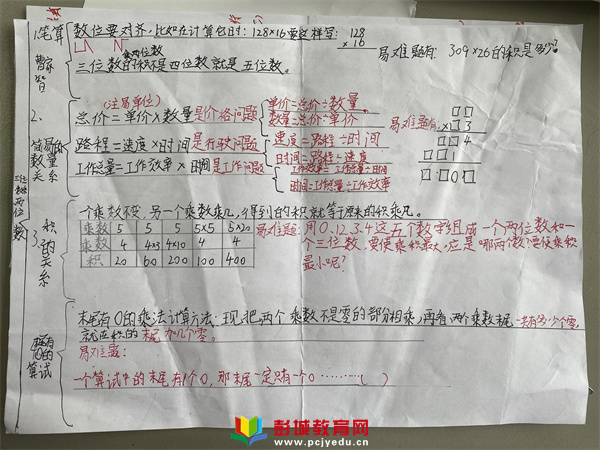 1.笔算 数位要对齐,比如在计算时:128×16要这样写: 128
× 16
易难题有: 309×26的积是多少?
三位数的积是四位数就是五位数。
两位数
2. (注易单位)
总价=单价×数量是价格问题
单价=总价÷数量
数量=总价÷单价
简易的数量关系
路程=速度×时间是行驶问题
速度=路程÷时间
时间=路程÷速度
工作总量=工作效率×时间是工作问题
工作效率=工作总量÷时间
时间=工作总量÷工作效率
易难题有: □□
×□3
□□4
□□1
□□0□
3. 积的关系
一个乘数不变,另一个乘数乘几,得到的积就等于原来的积乘几。
乘数 5 5 5 5×5 5×20
乘数 4 4×3 4×10 4 4
积 20 60 200 100 400
易难题:用0.12.3.4这五个数字组成一个两位数和一
个三位数,要使乘积最大,应是哪两个数?要使乘积
最小呢?
末尾有0的乘法计算方法:现把两个乘数不是零的部分相乘,再看两个乘数末尾一共有多少个零,
就应积的末尾加几个零。
易难题:
一个算式中的末尾有1个0,那末尾一定只有一个0………( )
彭城教育网
www.pcjyedu.cn